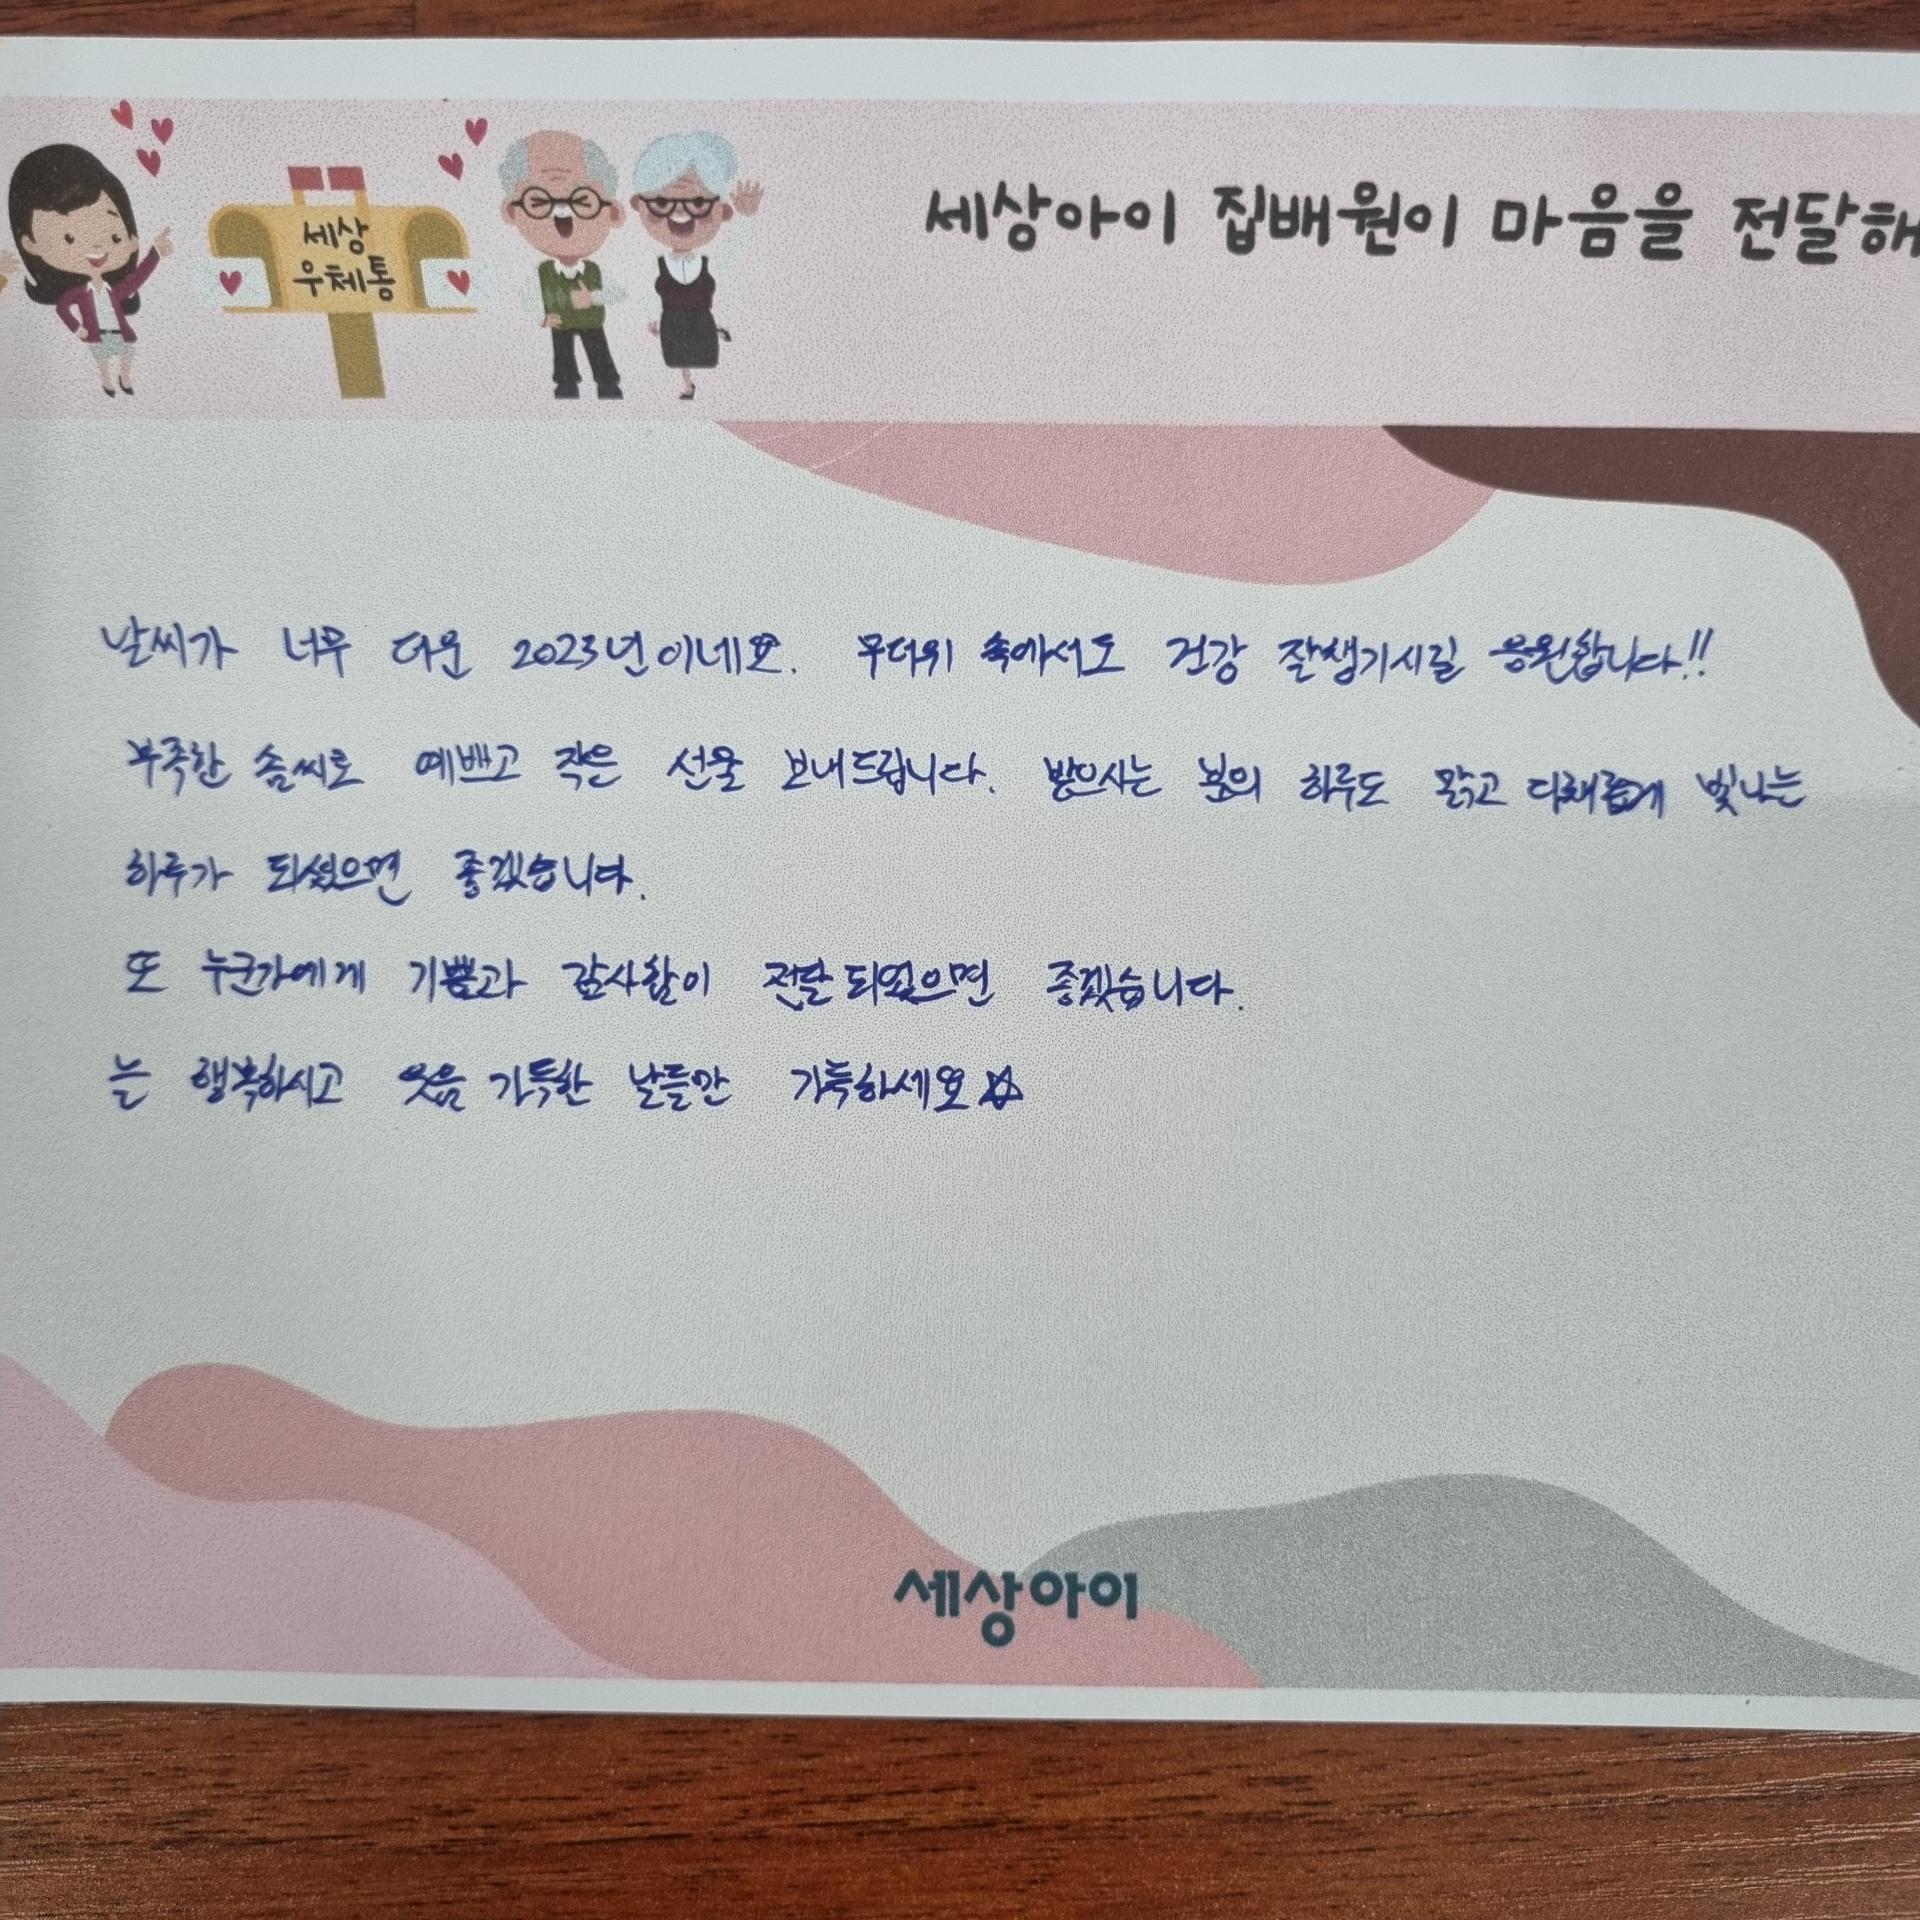 세상
우체통
세상아이 집배원이 마음을 전달해
날씨가 너무 더운 2023년이네요. 무더위 속에서도 건강 잘챙기시길 응원합니다!!
부족한 솜씨로 예쁘고 작은 선물 보내드립니다. 받으시는 분의 하루도 맑고 다채롭게 빛나는
하루가 되셨으면 좋겠습니다.
또 누군가에게 기쁨과 감사함이 전달되었으면 좋겠습니다.
늘 행복하시고 웃음 가득한 날들만 가득하세요☆
세상아이